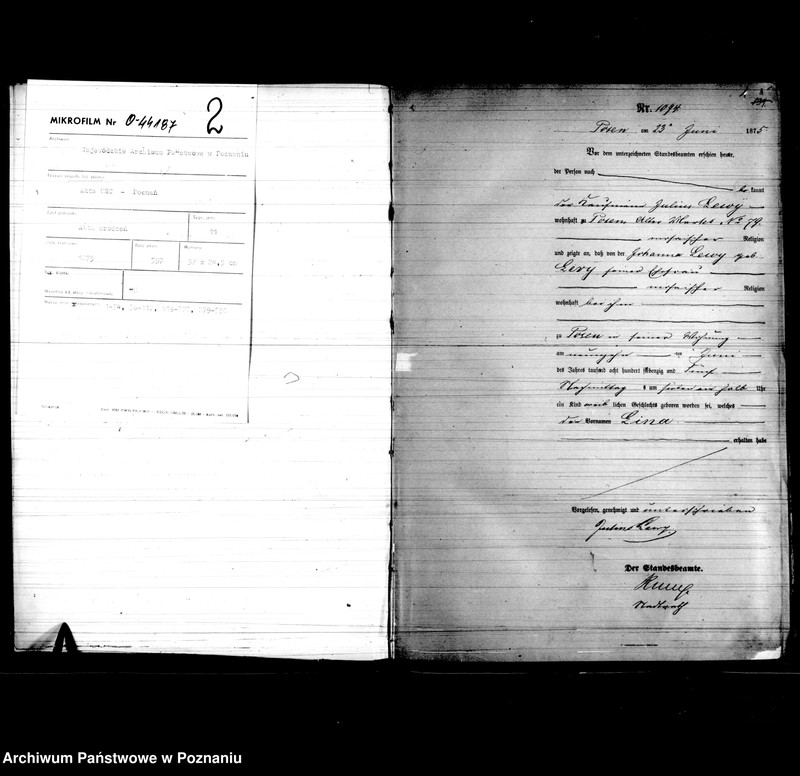 MIKROFILM Nr O-44187
2
Wojewódzkie Archiwum Państwowe w Poznaniu
Akta USC - Poznań
Akta urodzeń
1875
Nr. 1094
Posen am 23 Juni 1875
Vor dem unterzeichneten Standesbeamten erschien heute,
der Person nach
kannt
der Kaufmann Julius Lewy
wohnhaft zu Posen Alter Markt No 79
mosaischer Religion
und zeigte an, daß von der Johanna Lewy geb.
Levy seiner Ehefrau
mosaischer Religion
wohnhaft bei ihm
zu Posen in seiner Wohnung
am neunzehn ten Juni
des Jahres tausend acht hundert siebenzig und Fünf
Nachmittags um halb Uhr
ein Kind weib lichen Geschlechts geboren worden sei, welches
Vornamen Lina
erhalten habe
Vorgelesen, genehmigt und unterschrieben
Julius Lewy
Der Standesbeamte.
Stadtrath
Archiwum Państwowe w Poznaniu